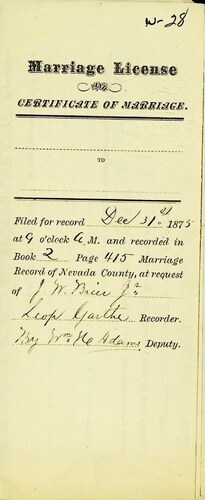 N-28
Marriage License
OR
CERTIFICATE OF MARRIAGE.
TO
Filed for record Dec 31st 1875
at 9 o'clock A.M. and recorded in
Book 2 Page 415 Marriage
Record of Nevada County, at request
of J. W. Brier Jr.
Leop Garthe Recorder.
By Wm H Adams, Deputy.